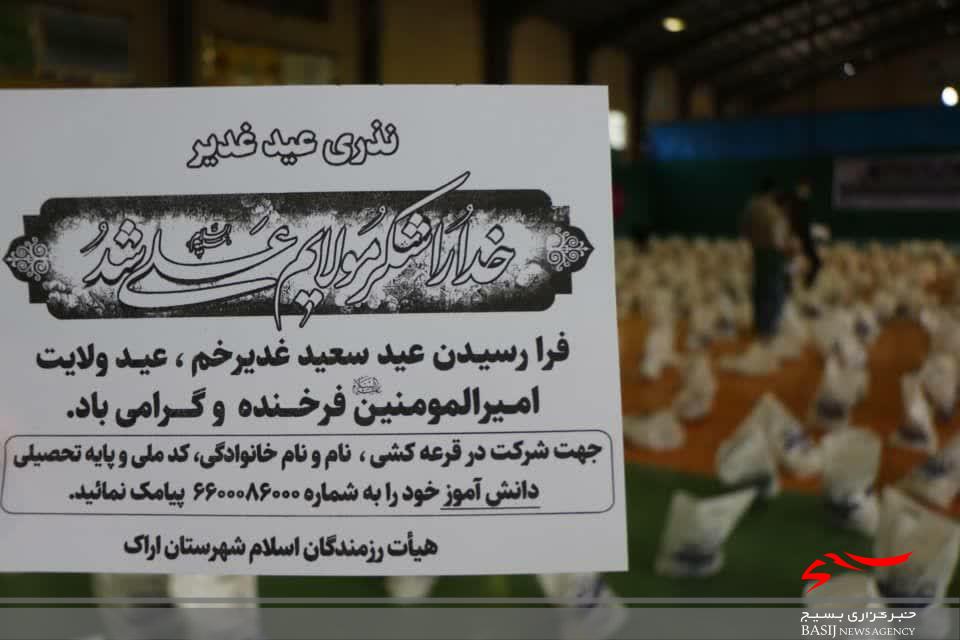 نذری عید غدیر
خدا را شکر مولایم علی شد
فرا رسیدن عید سعید غدیرخم ، عید ولایت
امیرالمومنین فرخنده و گرامی باد.
جهت شرکت در قرعه کشی ، نام و نام خانوادگی، کد ملی و پایه تحصیلی
دانش آموز خود را به شماره ۶۶۰۰۰۸۶۰۰۰ پیامک نمائید.
هیأت رزمندگان اسلام شهرستان اراک
خبرگزاری بسیج
BASIJ NEWS AGENCY